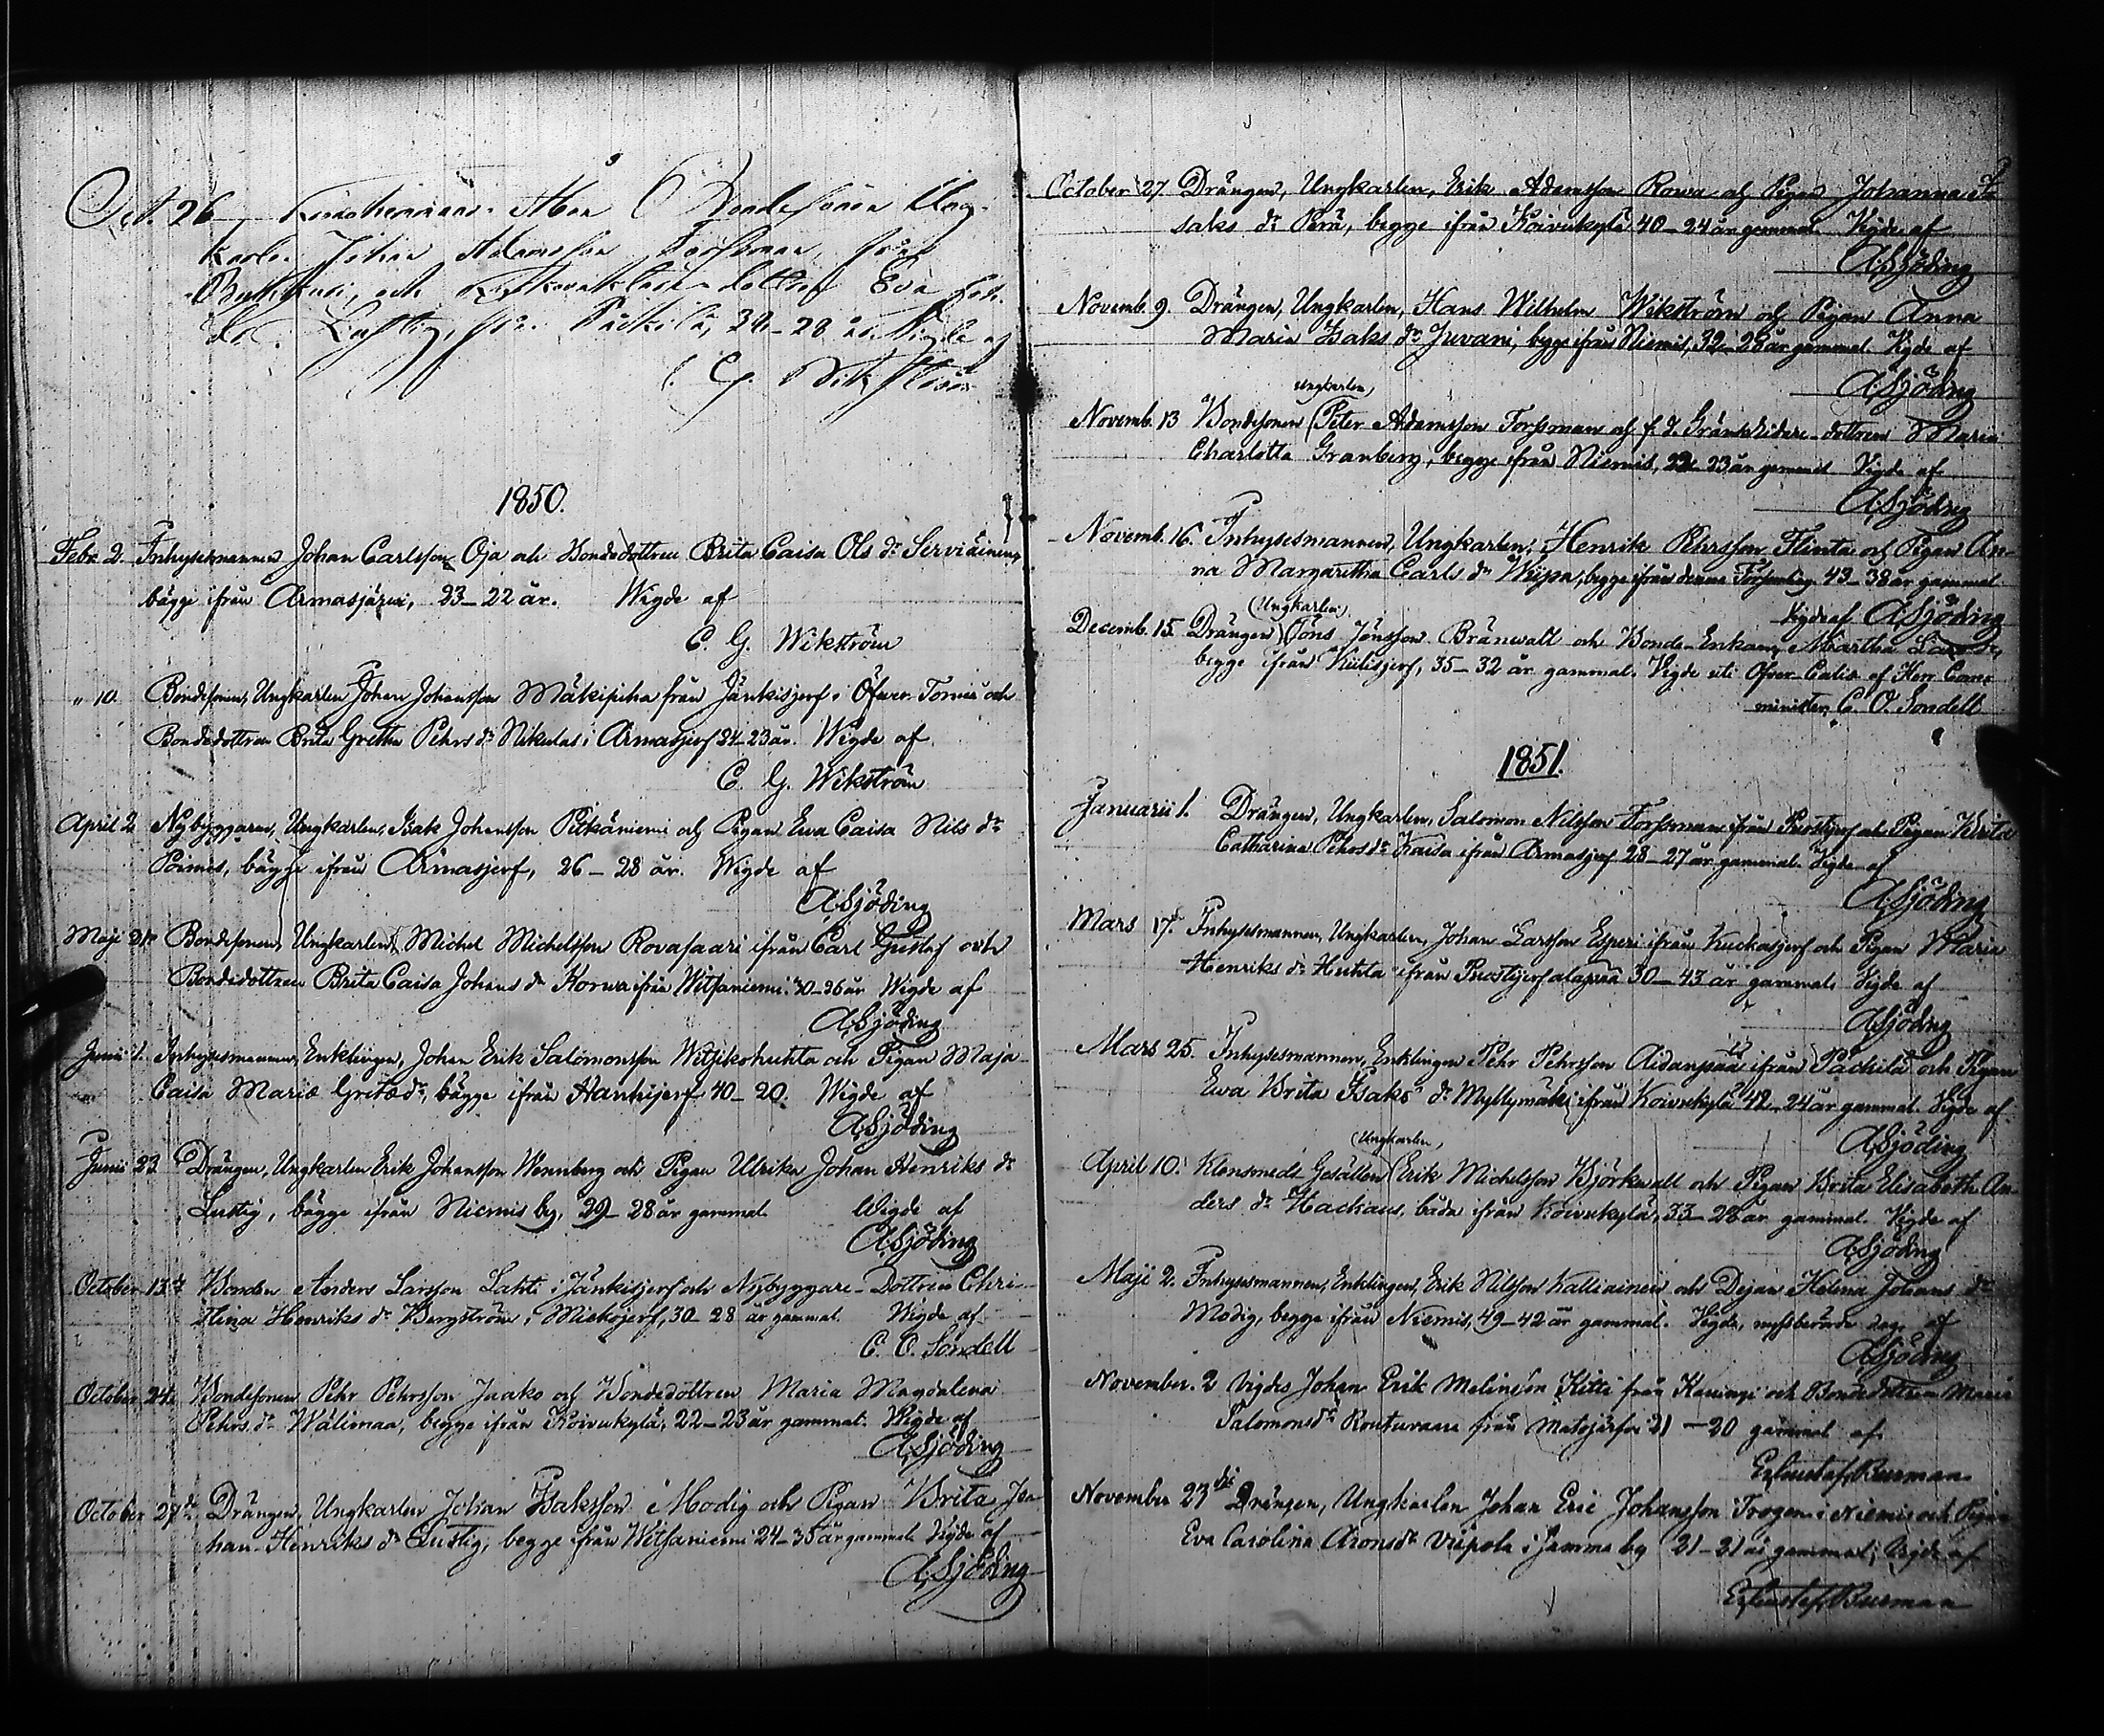 Oct. 26 Bondesonen Ung-
karlen Johan Adamsson Forssman, från
och dottren Eva
Lustig, från Päckilä, 28 år. Vigde af
C. G. Wikström
1850.
Febr. 2. Inhysesmannen Johan Carlsson Oja och Bondedottren Brita Caisa Ols dr Serviäinen,
bägge ifrån Armasjärvi, 23–22 år. Wigde af
C. G. Wikström
" 10. Bondesonen, Ungkarlen Johan Johansson Mäkipiha från Jänkisjerf i Öfver Torneå och
Bondedottren Brita Gretha Pehrs dr Nikulas i Armasjerf 24–23 år. Wigde af
C. G. Wikström
April 2 Nybyggaren, Ungkarlen, Isak Johansson Pitkäniemi och Pigan Ewa Caisa Nils dr
Poimes, bägge ifrån Armasjerf, 26–28 år. Wigde af
A. Sjöding
Maji Bondesonen, Ungkarlen, Michel Michelsson Rovasaari ifrån Carl Gustaf och
Bondedottren Brita Caisa Johans dr Korwa ifrån Witsaniemi 30–26 år Wigde af
A. Sjöding
Junii 1. Inhysesmannen, Enklingen, Johan Erik Salomonsson Witsikohuhta och Pigan Maja
Caisa Mariæ Gretæ dr, bägge ifrån Hankijerf 40–20. Wigde af
A. Sjöding
Junii 23 Drängen, Ungkarlen Erik Johansson Wennberg och Pigan Ulrika Johan Henriks dr
Lustig, bägge ifrån Niemis by, 29–28 år gammal. Wigde af
A. Sjöding
October 13de Bonden Anders Larsson Lahti i Jänkisjerf och Nybyggare-Dottren Chri-
stina Henriks dr Bergström i Miekojerf, 30–28 år gammal. Wigde af
C. O. Sondell
October 24. Bondesonen Pehr Pehrsson Jaako och Bondedottren Maria Magdalena
Pehrs dr Wälimaa, begge ifrån Koivukylä, 22–23 år gammal. Wigde af
A. Sjöding
October 27de Drängen, Ungkarlen Johan Isaksson Modig och Pigan Brita Jo-
han-Henriks dr Lustig, begge ifrån Witsaniemi 24–35 år gammal. Vigde af
A. Sjöding
October 27 Drängen, Ungkarlen, Erik Adamsson Rowa och Pigan Johanna I-
saks dr Perä, begge ifrån Koivukylä 40–24 år gammal. Vigde af
A. Sjöding
Novemb. 9. Drängen, Ungkarlen, Hans Wilhelm Wikström och Pigan Anna
Maria Isaks dr Juvani, begge ifrån Niemis, 32–28 år gammal. Vigde af
A. Sjöding
Ungkarlen,
Novemb. 13 Bondesonen Peter Adamsson Forssman och f. d. Gränsridare-dottren Maria
Charlotta Granberg, begge från Niemis, 22–23 år gammal Vigde af
A. Sjöding
Novemb. 16. Inhysesmannen, Ungkarlen, Henrik Pehrsson Flinta och Pigan An-
na Margaretha Carls dr Wiipa, begge ifrån 43–38 år gammal
Vigde af A. Sjöding
(Ungkarlen)
Decemb. 15. Drängen Jöns Jönsson Brännvall och Bonde-Enkan, Martha Lars dr,
begge ifrån Kuilisjerf, 35–32 år gammal. Vigde uti Öfver-Calix af Herr Com-
minister C. O. Sondell
1851.
Januarii 1. Drängen, Ungkarlen, Salomon Nilsson Forssman ifrån och Pigan Brita
Catharina Pehrs dr Kaisa ifrån Armasjerf 28–27 år gammal. Vigde af
A. Sjöding
Mars 17. Inhysesmannen, Ungkarlen, Johan Larsson Esperi ifrån Kuckasjerf och Pigan Maria
Henriks dr Huhta ifrån 30–43 år gammal. Vigde af
A. Sjöding
Mars 25. Inhysesmannen, Enklingen Pehr Pehrsson Aidanpää ifrån Päckilä och Pigan
Ewa Brita Isaks dr Myllymäki ifrån Koivukylä 42–24 år gammal. Vigde af
A. Sjöding
(Ungkarlen,
April 10. Klensmeds Gesällen Erik Michelsson Björkwall och Pigan Brita Elisabeth An-
ders dr Hackaus, båda ifrån Koivukylä, 33–28 år gammal. Vigde af
A. Sjöding
Maji 2. Inhysesmannen, Enklingen, Erik Nilsson Kalliainen och Dejan Helena Johans dr
Modig, begge ifrån Niemis, 49–42 år gammal. Vigde, nyssberörde dag, af
A. Sjöding
November. 2 Vigdes Johan Erik Kitti från Kauinge och Bondedottren Maria
Salomonsdr Routuvaara från Matojärfvi 21–20 gammal af
E. Gustaf Burman
November 23die Drängen, Ungkarlen Johan Eric Johansson Trogen i Niemis och Pigan
Eva Carolina Aronsdr Viipola i samma by 21–21 år gammal; Vigde af
E. Gustaf Burman